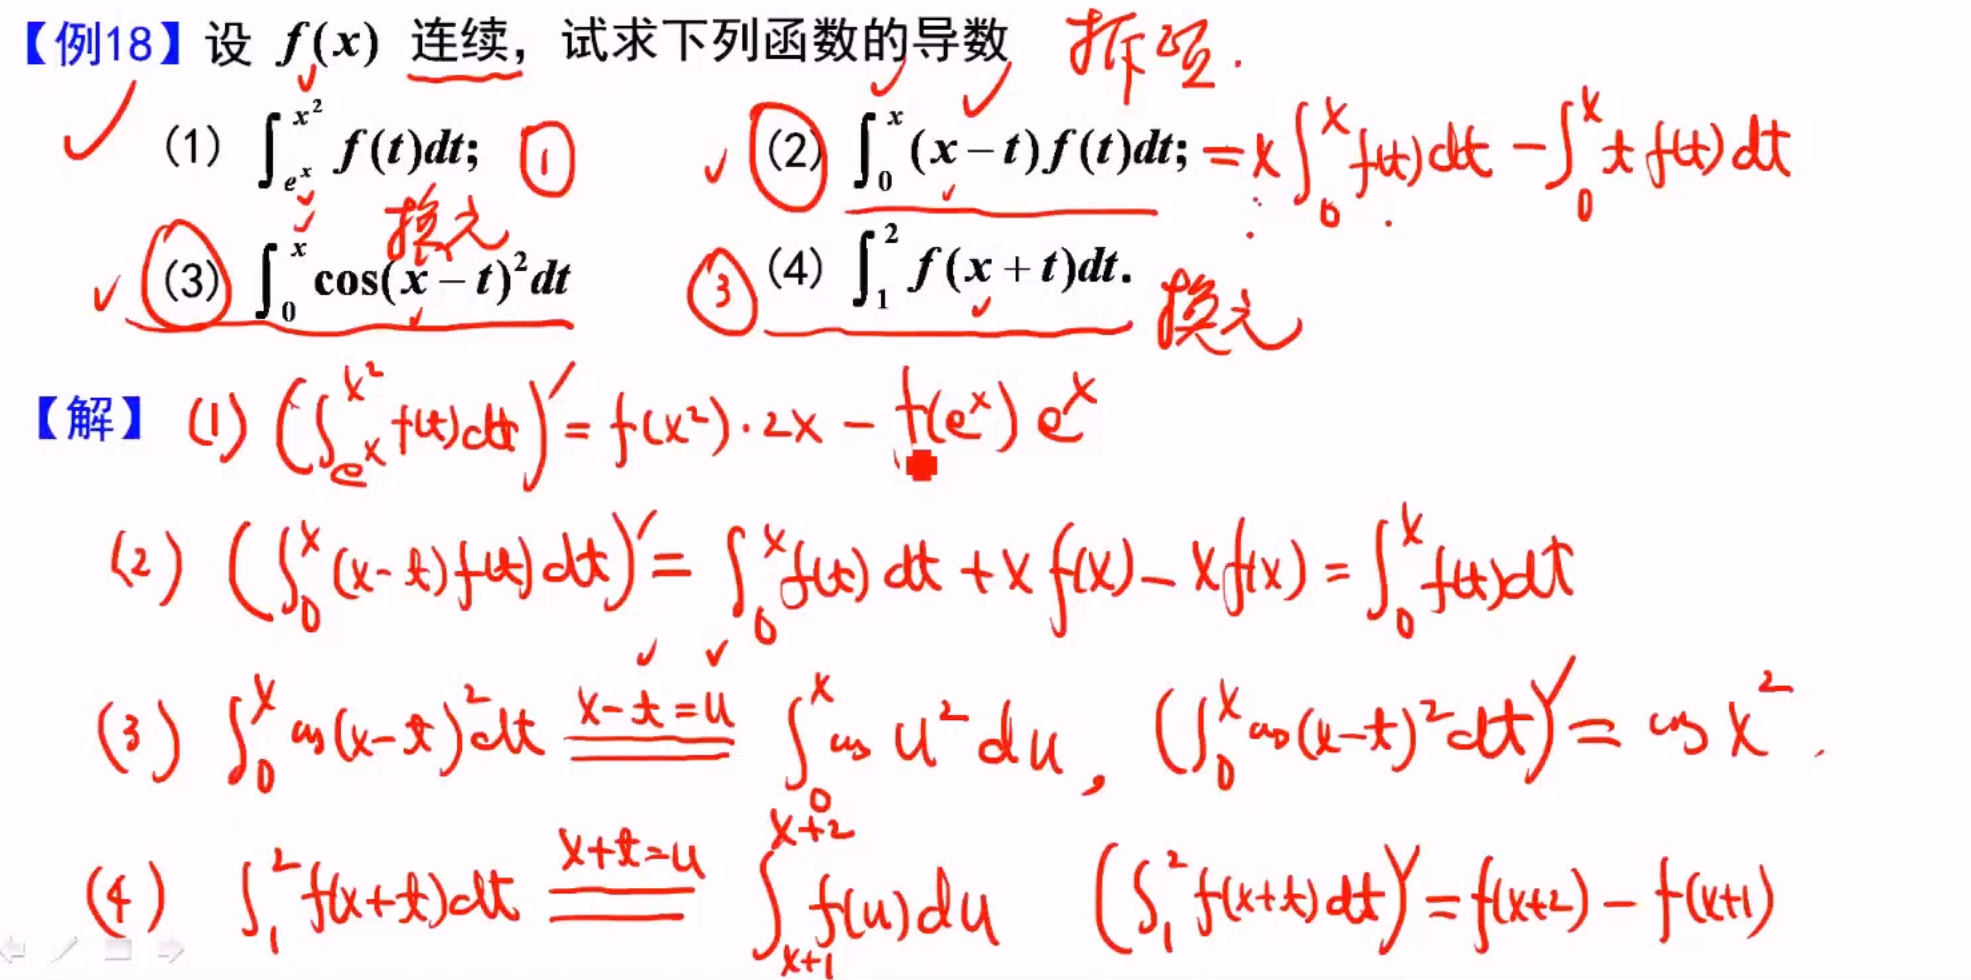 【例18】设 f(x) 连续，试求下列函数的导数 拆项.
(1) ∫_{e^x}^{x^2} f(t)dt; ① (2) ∫_0^x (x−t)f(t)dt; = x∫_0^x f(t)dt − ∫_0^x t f(t)dt
换元
(3) ∫_0^x cos(x−t)^2dt ③ (4) ∫_1^2 f(x+t)dt. 换元
【解】 (1) (∫_{e^x}^{x^2} f(t)dt)′ = f(x^2)·2x − f(e^x) e^x
(2) (∫_0^x (x−t)f(t)dt)′ = ∫_0^x f(t)dt + x f(x) − x f(x) = ∫_0^x f(t)dt
(3) ∫_0^x cos(x−t)^2dt ==(x−t=u)== ∫_0^x cos u^2 du, (∫_0^x cos(x−t)^2dt)′ = cos x^2.
(4) ∫_1^2 f(x+t)dt ==(x+t=u)== ∫_{x+1}^{x+2} f(u)du (∫_1^2 f(x+t)dt)′ = f(x+2) − f(x+1)